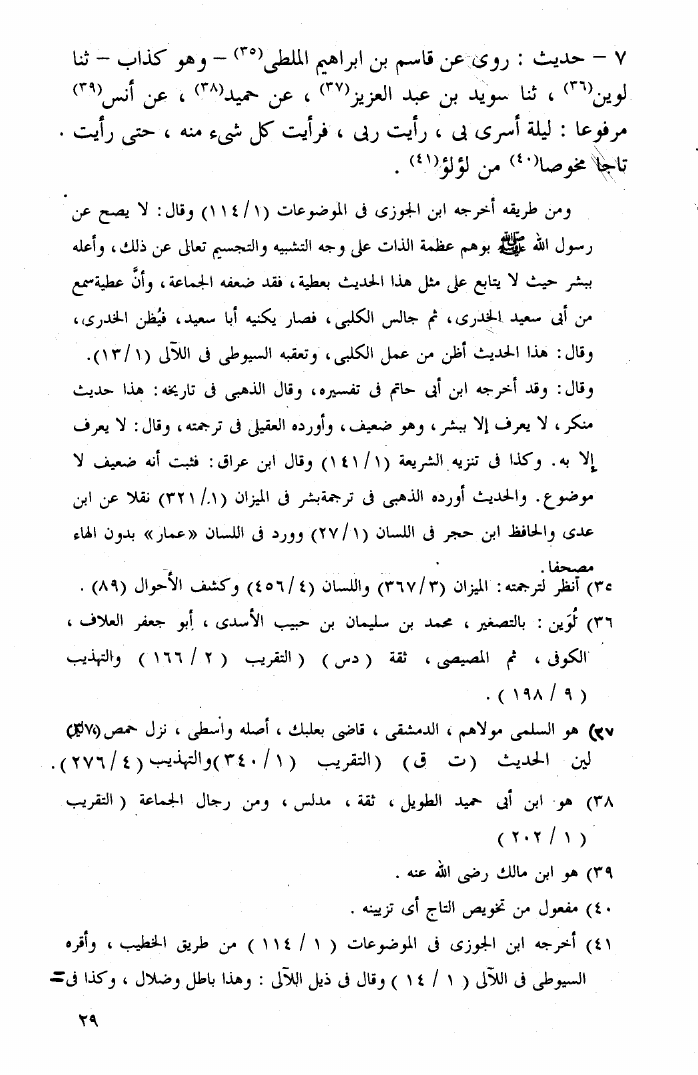 ٧ – حديث : روى عن قاسم بن ابراهيم الملطى(٣٥) – وهو كذاب – ثنا
لوين(٣٦) ، ثنا سويد بن عبد العزيز(٣٧) ، عن حميد(٣٨) ، عن أنس(٣٩)
مرفوعا : ليلة أسرى بى ، رأيت ربى ، فرأيت كل شىء منه ، حتى رأيت .
تاجا مخوصا(٤٠) من لؤلؤ(٤١) .
ومن طريقه أخرجه ابن الجوزى فى الموضوعات (١١٤/١) وقال: لا يصح عن
رسول الله ﷺ بوهم عظمة الذات على وجه التشبيه والتجسيم تعالى عن ذلك، وأعله
ببشر حيث لا يتابع على مثل هذا الحديث بعطية، فقد ضعفه الجماعة، وأنَّ عطية سمع
من أبى سعيد الخدرى، ثم جالس الكلبى، فصار يكنيه أبا سعيد، فيُظن الخدرى،
وقال: هذا الحديث أظن من عمل الكلبى، وتعقبه السيوطى فى اللآلى (١٣/١).
وقال: وقد أخرجه ابن أبى حاتم فى تفسيره، وقال الذهبى فى تاريخه: هذا حديث
منكر، لا يعرف إلا ببشر، وهو ضعيف، وأورده العقيلى فى ترجمته، وقال: لا يعرف
إلا به. وكذا فى تنزيه الشريعة (١٤١/١) وقال ابن عراق: فثبت أنه ضعيف لا
موضوع. والحديث أورده الذهبى فى ترجمة بشر فى الميزان (٣٢١/١) نقلا عن ابن
عدى والحافظ ابن حجر فى اللسان (٢٧/١) وورد فى اللسان «عمار» بدون الهاء
مصحفا.
٣٥) أنظر لترجمته: الميزان (٣٦٧/٣) واللسان (٤٥٦/٤) وكشف الأحوال (٨٩) .
٣٦) لُوَين : بالتصغير ، محمد بن سليمان بن حبيب الأسدى ، أبو جعفر العلاف ،
الكوفى ، ثم المصيصى ، ثقة ( دس ) ( التقريب ( ٢ / ١٦٦ ) والتهذيب
( ٩ / ١٩٨ ) .
٣٧) هو السلمى مولاهم ، الدمشقى ، قاضى بعلبك ، أصله واسطى ، نزل حمص
لين الحديث (ت ق) (التقريب (١ / ٣٤٠)والتهذيب (٤ / ٢٧٦).
٣٨) هو ابن أبى حميد الطويل ، ثقة ، مدلس ، ومن رجال الجماعة ( التقريب
( ١ / ٢٠٢ )
٣٩) هو ابن مالك رضى الله عنه .
٤٠) مفعول من تخويص التاج أى تزيينه .
٤١) أخرجه ابن الجوزى فى الموضوعات ( ١ / ١١٤ ) من طريق الخطيب ، وأقره
السيوطى فى اللآلى ( ١ / ١٤ ) وقال فى ذيل اللآلى : وهذا باطل وضلال ، وكذا فى =
٢٩